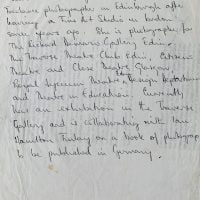 photographer in Edinburgh after
having a Fine Art Studio in London
some years ago. She is photographer for
The Richard Demarco Gallery Edin.
The Traverse Theatre Club Edin. Citizens
Theatre and Close Theatre Glasgow,
Royal Lyceum Theatre Edin.
and Theatre in Education. Currently
has an exhibition in the Traverse
Gallery and is collaborating with Ian
Hamilton Finlay on a book of photographs
to be published in Germany.